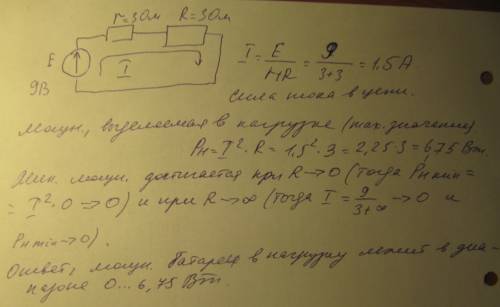 r=3Ом R=3Ом
E
9В
I
I = E/r+R = 9/3+3 = 1.5А
Сила тока в цепи.
Мощн., выделяемая в нагрузке (max. значение)
Pн = I² · R = 1,5² · 3 = 2,25·3 = 6,75 Вт.
Мин. мощн. достигается при R→0 (тогда Pн мин =
= I² · 0 → 0) и при R→∞ (тогда I = 9/3+∞ → 0 и
Pн min → 0).
Ответ, мощн. батареи в нагрузку лежит в диа-
пазоне 0...6,75 Вт.